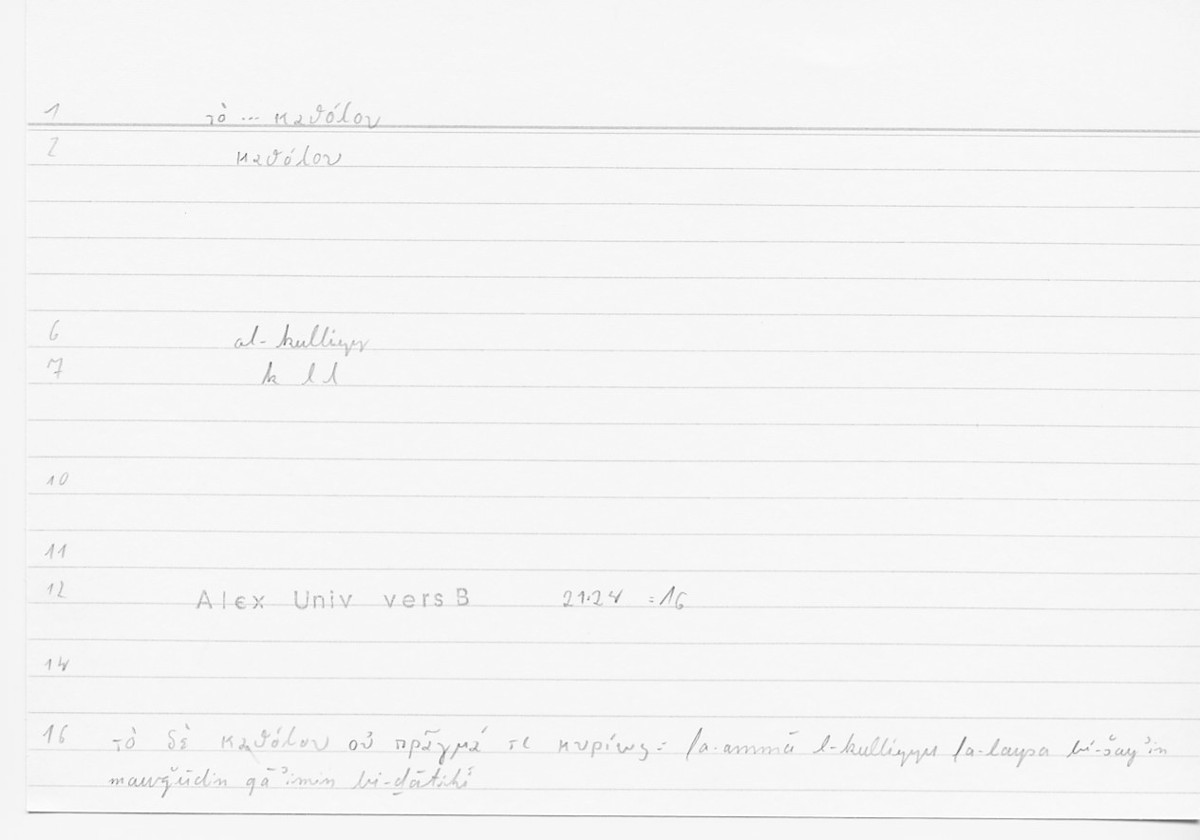 1 τὸ ... καθόλου
2 καθόλου
6 al-kulliyy
7 k l l
10
11
12 Alex Univ vers B 21.24 =16
14
16 τὸ δὲ καθόλου οὐ πρᾶγμά τι κυρίως = fa-ammā l-kulliyyu fa-laysa bi-šayʾin
mawǧūdin qāʾimin bi-ḏātihī